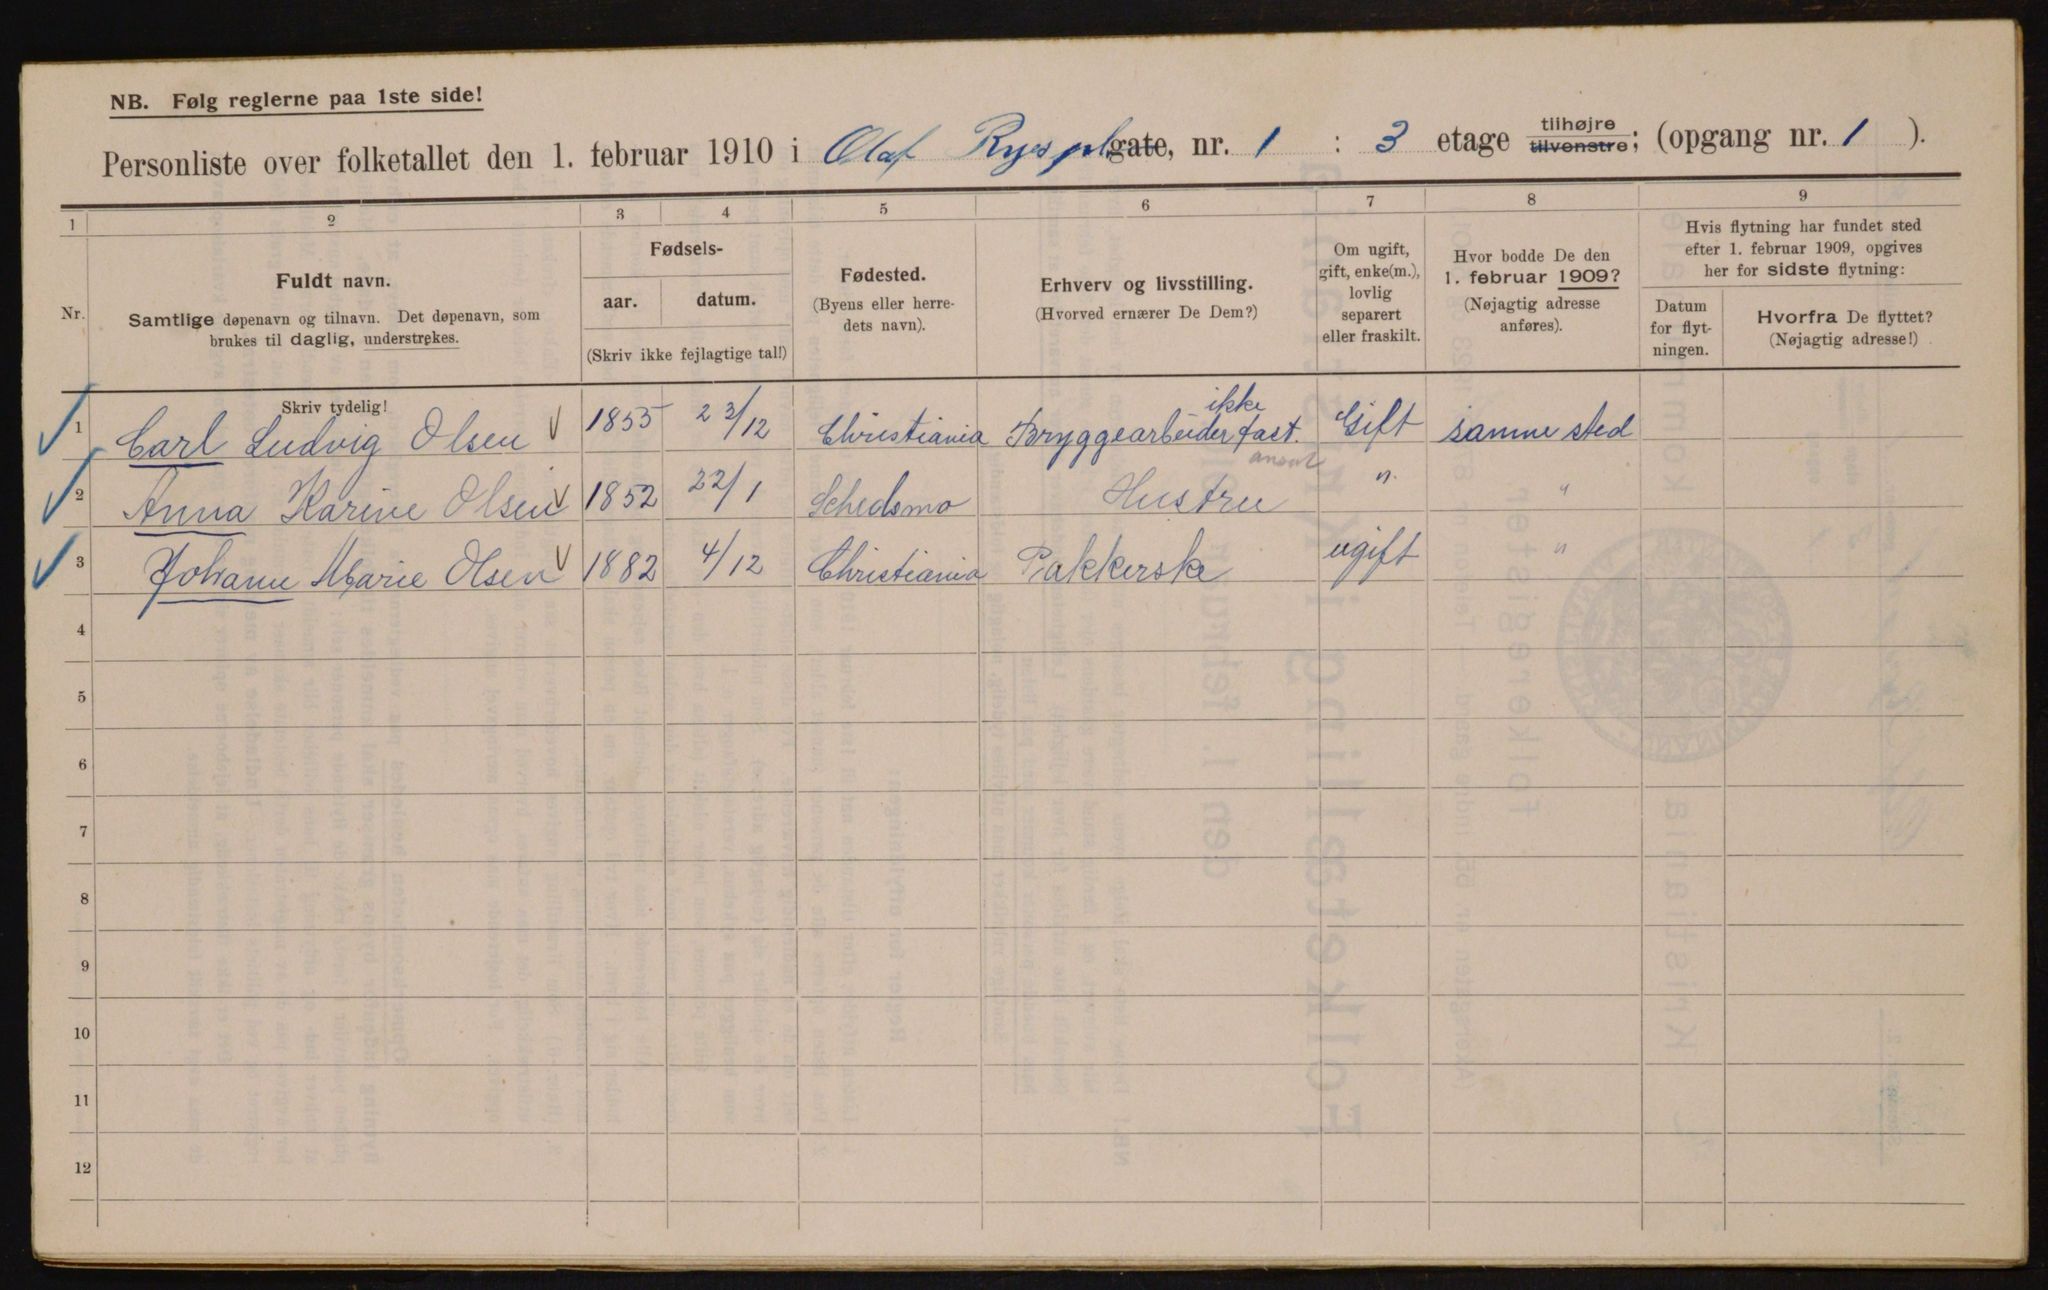 NB. Følg reglerne paa 1ste side!
Personliste over folketallet den 1. februar 1910 i Olaf Ryes pl. gate, nr. 1 : 3 etage tilhøjre tilvenstre; (opgang nr. 1 ).
1 2 3 4 5 6 7 8 9
Nr.
Fuldt navn.
Samtlige døpenavn og tilnavn. Det døpenavn, som
brukes til daglig, understrekes.
Fødsels-
aar. datum.
(Skriv ikke fejlagtige tal!)
Fødested.
(Byens eller herre-
dets navn).
Erhverv og livsstilling.
(Hvorved ernærer De Dem?)
Om ugift,
gift, enke(m.),
lovlig
separert
eller fraskilt.
Hvor bodde De den
1. februar 1909?
(Nøjagtig adresse
anføres).
Hvis flytning har fundet sted
efter 1. februar 1909, opgives
her for sidste flytning:
Datum
for flyt-
ningen.
Hvorfra De flyttet?
(Nøjagtig adresse!)
Skriv tydelig!
1 Carl Ludvig Olsen 1855 23/12 Christiania Bryggearbeider ikke fast. ansat Gift samme sted
2 Anna Karine Olsen 1852 22/1 Schedsmo Hustru " "
3 Johanne Marie Olsen 1882 4/12 Christiania Pakkerske ugift "
4
5
6
7
8
9
10
11
12